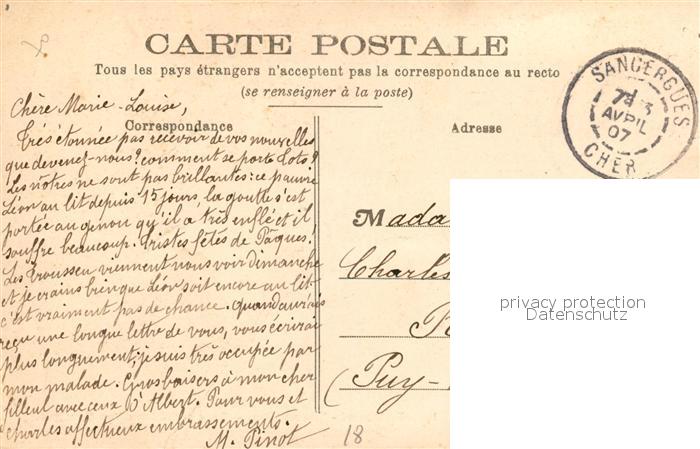 CARTE POSTALE
Tous les pays étrangers n'acceptent pas la correspondance au recto
(se renseigner à la poste)
SANCERGUES
AVRIL
07
CHER
Correspondance
Adresse
Chère Marie-Louise,
Très étonnée pas recevoir de vos nouvelles
que devenez-nous? comment se porte Loto?
Les nôtres ne sont pas brillantes: ce pauvre
Léon au lit depuis 15 jours, la goutte s'est
portée au genou qu'il a très enflé et il
souffre beaucoup. tristes fêtes de Pâques!
Les Trousseau viennent nous voir dimanche
et je crains bien que Léon soit encore au lit
c'est vraiment pas de chance. Quand aurais
reçu une longue lettre de vous, vous écrirai
plus longuement; je suis très occupée par
mon malade. Gros baisers à mon cher
filleul avec ceux d'Albert. Pour vous et
Charles affectueux embrassements.
M. Pinot
18
Mada
Charles
(Puy-
privacy protection
Datenschutz